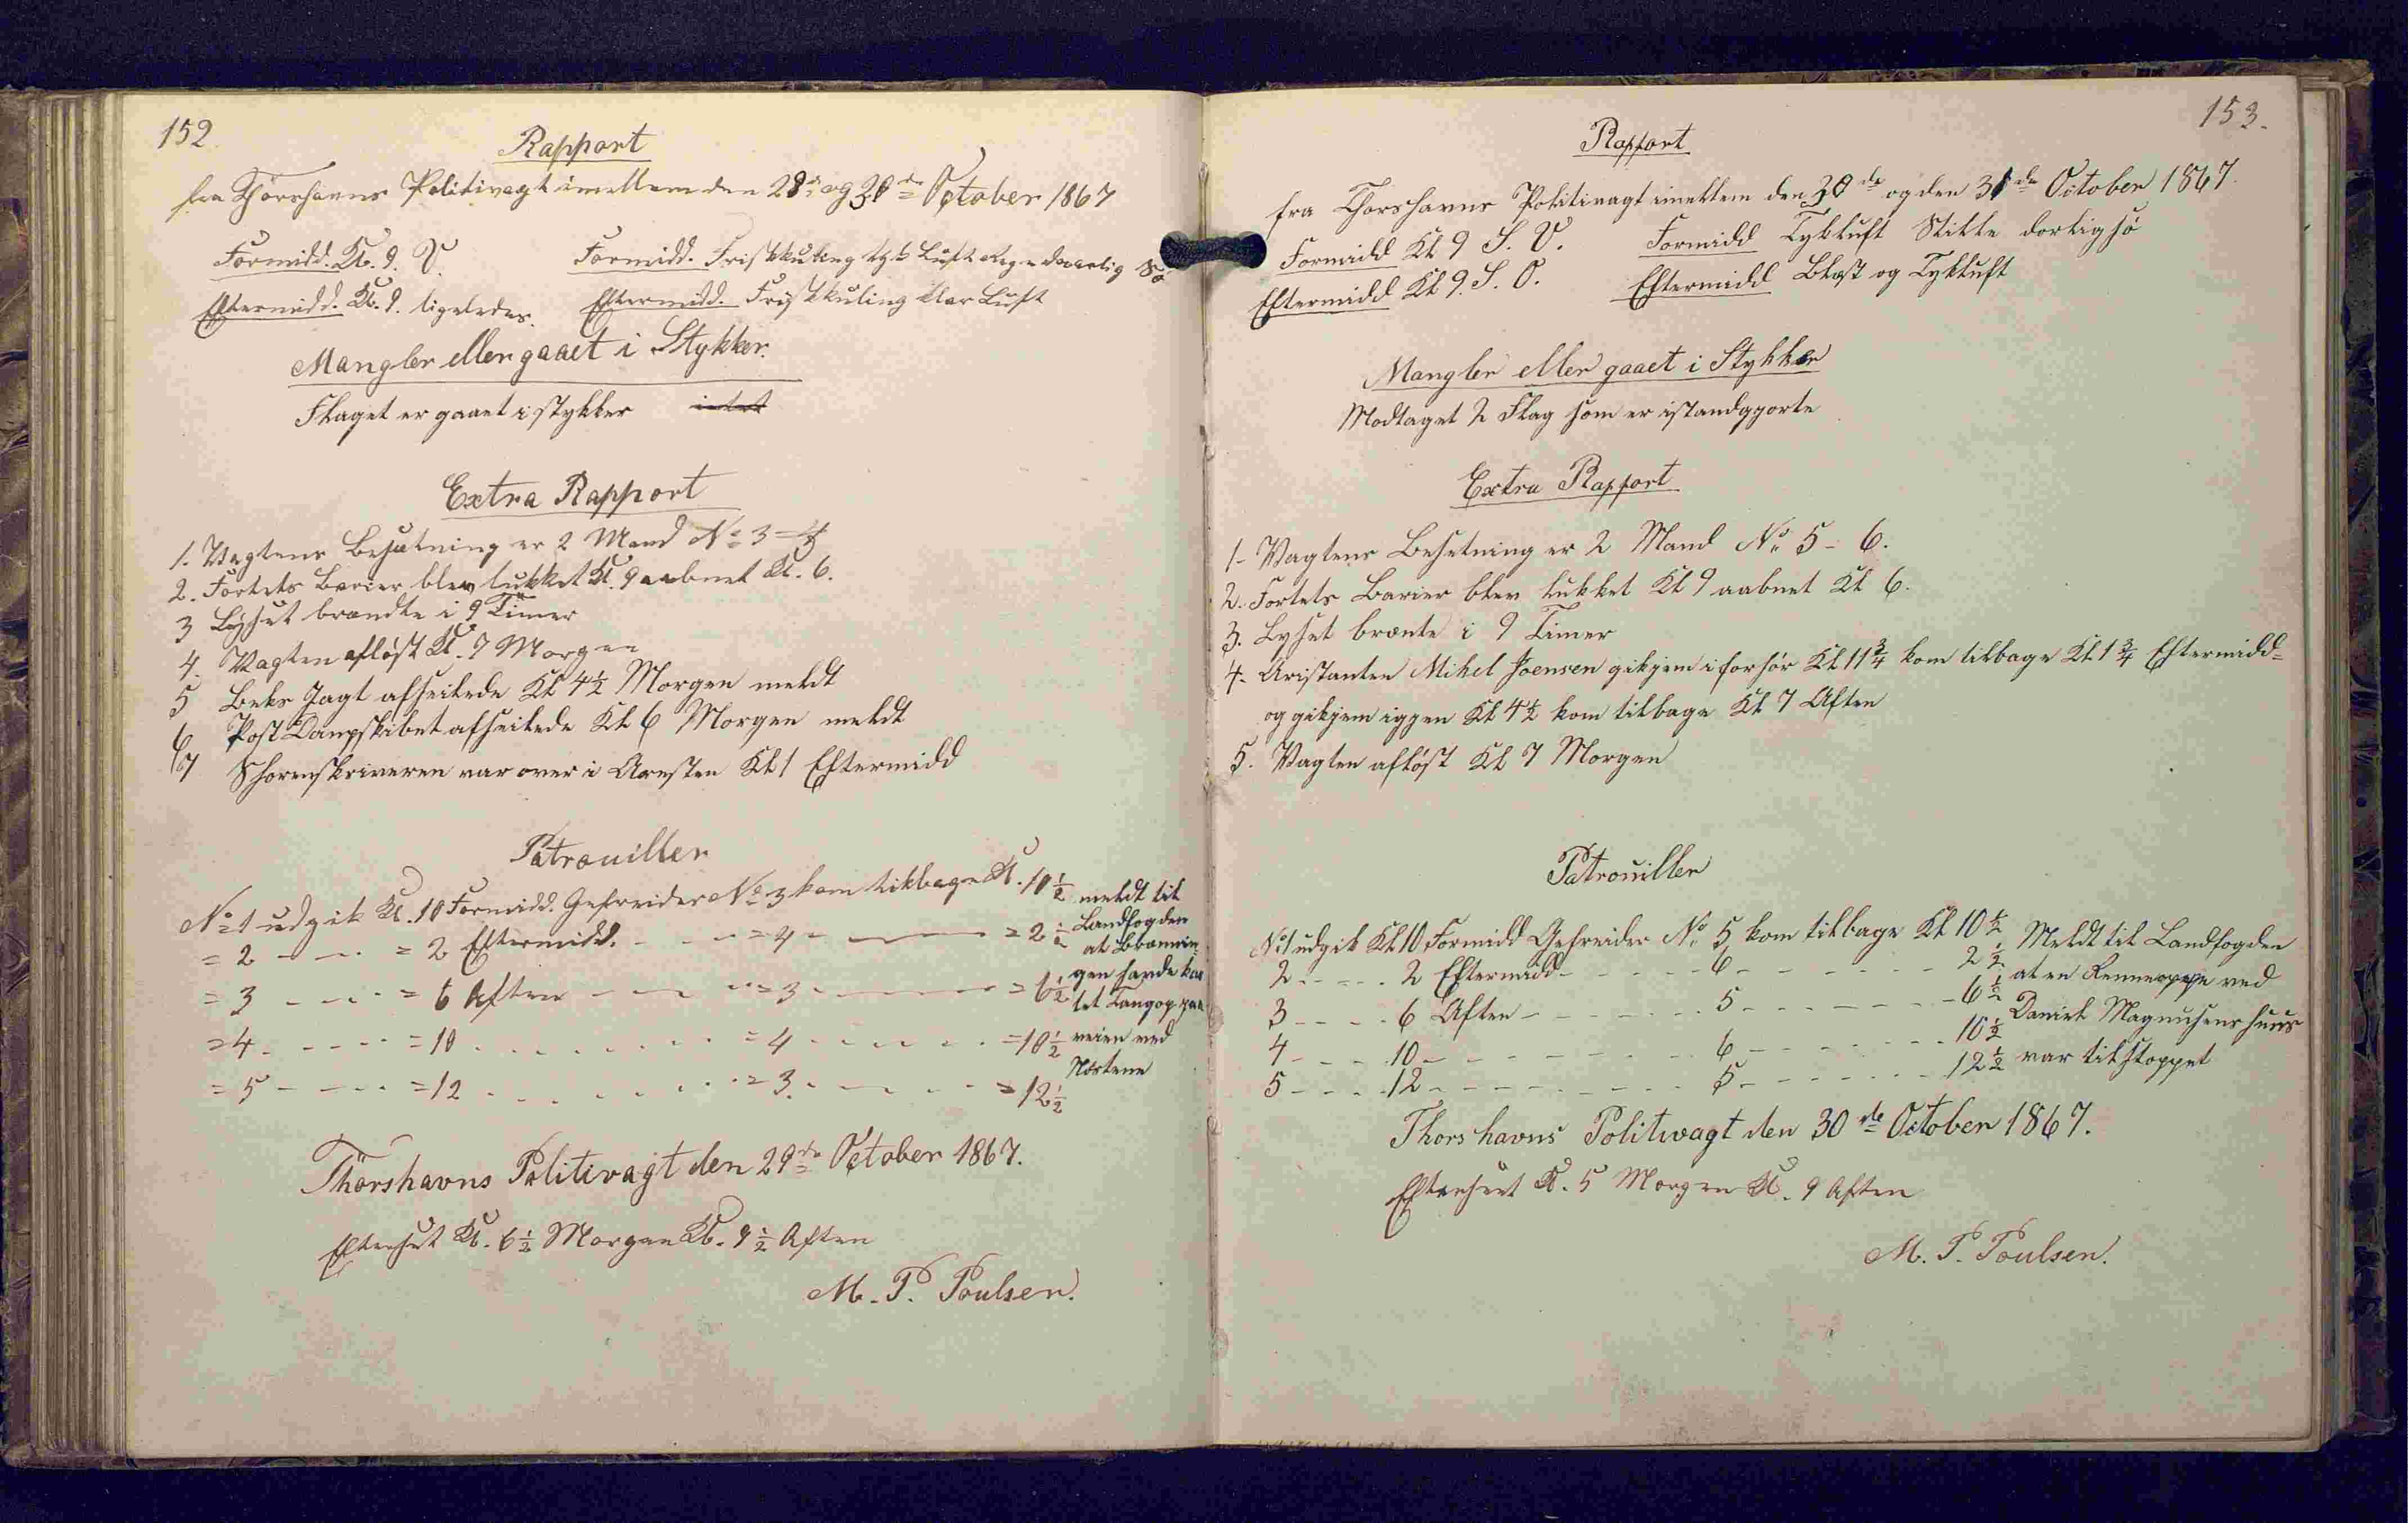 152.
Rapport
fra Thorshavns Politivagt imellem den 29de og 30de October 1867
Formidd. Kl. 9. V. Formidd. Friskkuling tyk Luft Regn daarlig Sø
Eftermidd. Kl. 9. ligeledes. Eftermidd. Friskkuling klar Luft
Mangler eller gaaet i Stykker.
Flaget er gaaet i stykker intet
Extra Rapport
1. Vagtens Besætning er 2 Mand No 3 = 4
2. Fortets Barier blev lukket Kl. 9 aabnet Kl. 6.
3 Lyset brændte i 9 Timer
4. Vagten afløst Kl. 7 Morgen
5 Beks Jagt afseilede Kl 4½ Morgen meldt
6 Post Dampskibet afseilede Kl 6 Morgen meldt
7 Sorenskriveren var over i Aresten Kl 1 Eftermidd
Patrouiller
No 1 udgik Kl. 10 Formidd. Gefreider No 3 kom tilbage Kl. 10½ meldt til
Landfogden
= 2 - - = 2 Eftermidd. - - = 4 - - = 2½ at Brænnin
= 3 - - = 6 Aften - - = 3 - - = 6½ gen havde kas
tet Tangop paa
= 4 - - = 10 - - = 4 - - = 10½ veien ved
Nøstene
= 5 - - = 12 - - = 3 - - = 12½
Thorshavns Politivagt den 29de October 1867.
Efterseet Kl. 6½ Morgen Kl. 9½ Aften
M. P. Poulsen.
153.
Rapport
fra Thorshavns Politivagt imellem den 30de og den 31de October 1867.
Formidd Kl 9 S. V. Formidd Tykluft Stille dorligsø
Eftermidd Kl 9. S. O. Eftermidd Blæst og Tykluft
Mangler eller gaaet i Stykker
Modtaget 2 Flag som er istandgjorte
Extra Rapport
1- Vagtens Besetning er 2 Mand No 5 - 6.
2. Fortets Barier blev lukket Kl 9 aabnet Kl 6.
3. Lyset brænte i 9 Timer
4. Aristanten Mikel Joensen gikjem i forhør Kl 11¾ kom tilbage Kl 1¾ Eftermidd=
og gikjem iggen Kl 4½ kom tilbage Kl 7 Aften
5. Vagten afløst Kl 7 Morgen
Patrouiller
No 1 udgik Kl 10 Formidd Gefreider No 5 kom tilbage Kl 10½ Meldt til Landfogden
2 - - 2 Eftermidd - - 6 - - 2½ at en Renneoppe ved
3 - - 6 Aften - - 5 - - 6½ Daniel Magnusens huus
4 - - 10 - - 6 - - 10½
5 - - 12 - - 5 - - 12½ var tilstoppet
Thorshavns Politivagt den 30de October 1867.
Efterseet Kl. 5 Morgen Kl. 9 Aften
M. P. Poulsen.